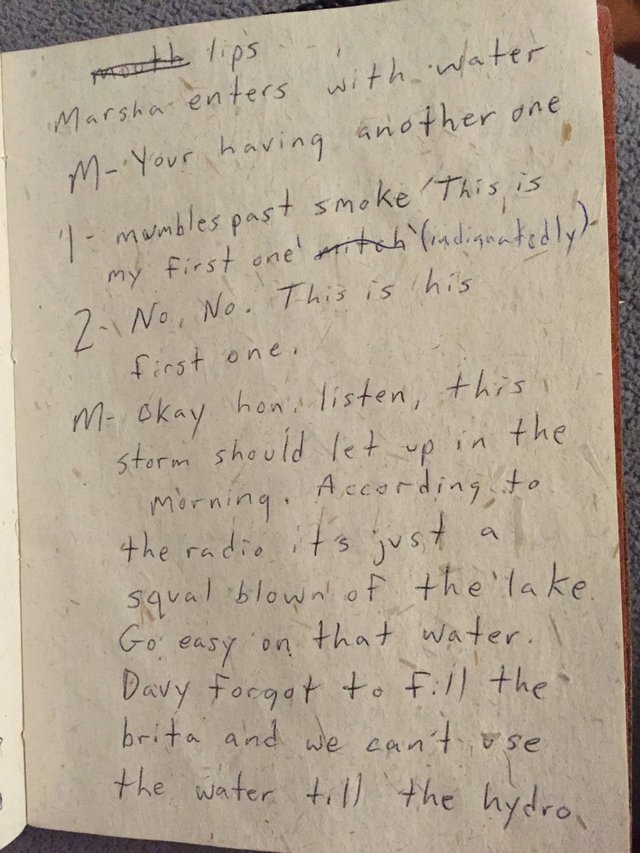 mouth lips
Marsha enters with water
M- Your having another one
1- mumbles past smoke 'This is
my first one' mitch (indignatedly)-
2- No, No. This is his
first one.
M- Okay hon, listen, this
storm should let up in the
morning. According to
the radio it's just a
squal blown of the lake.
Go easy on that water.
Davy forgot to fill the
brita and we can't use
the water till the hydro